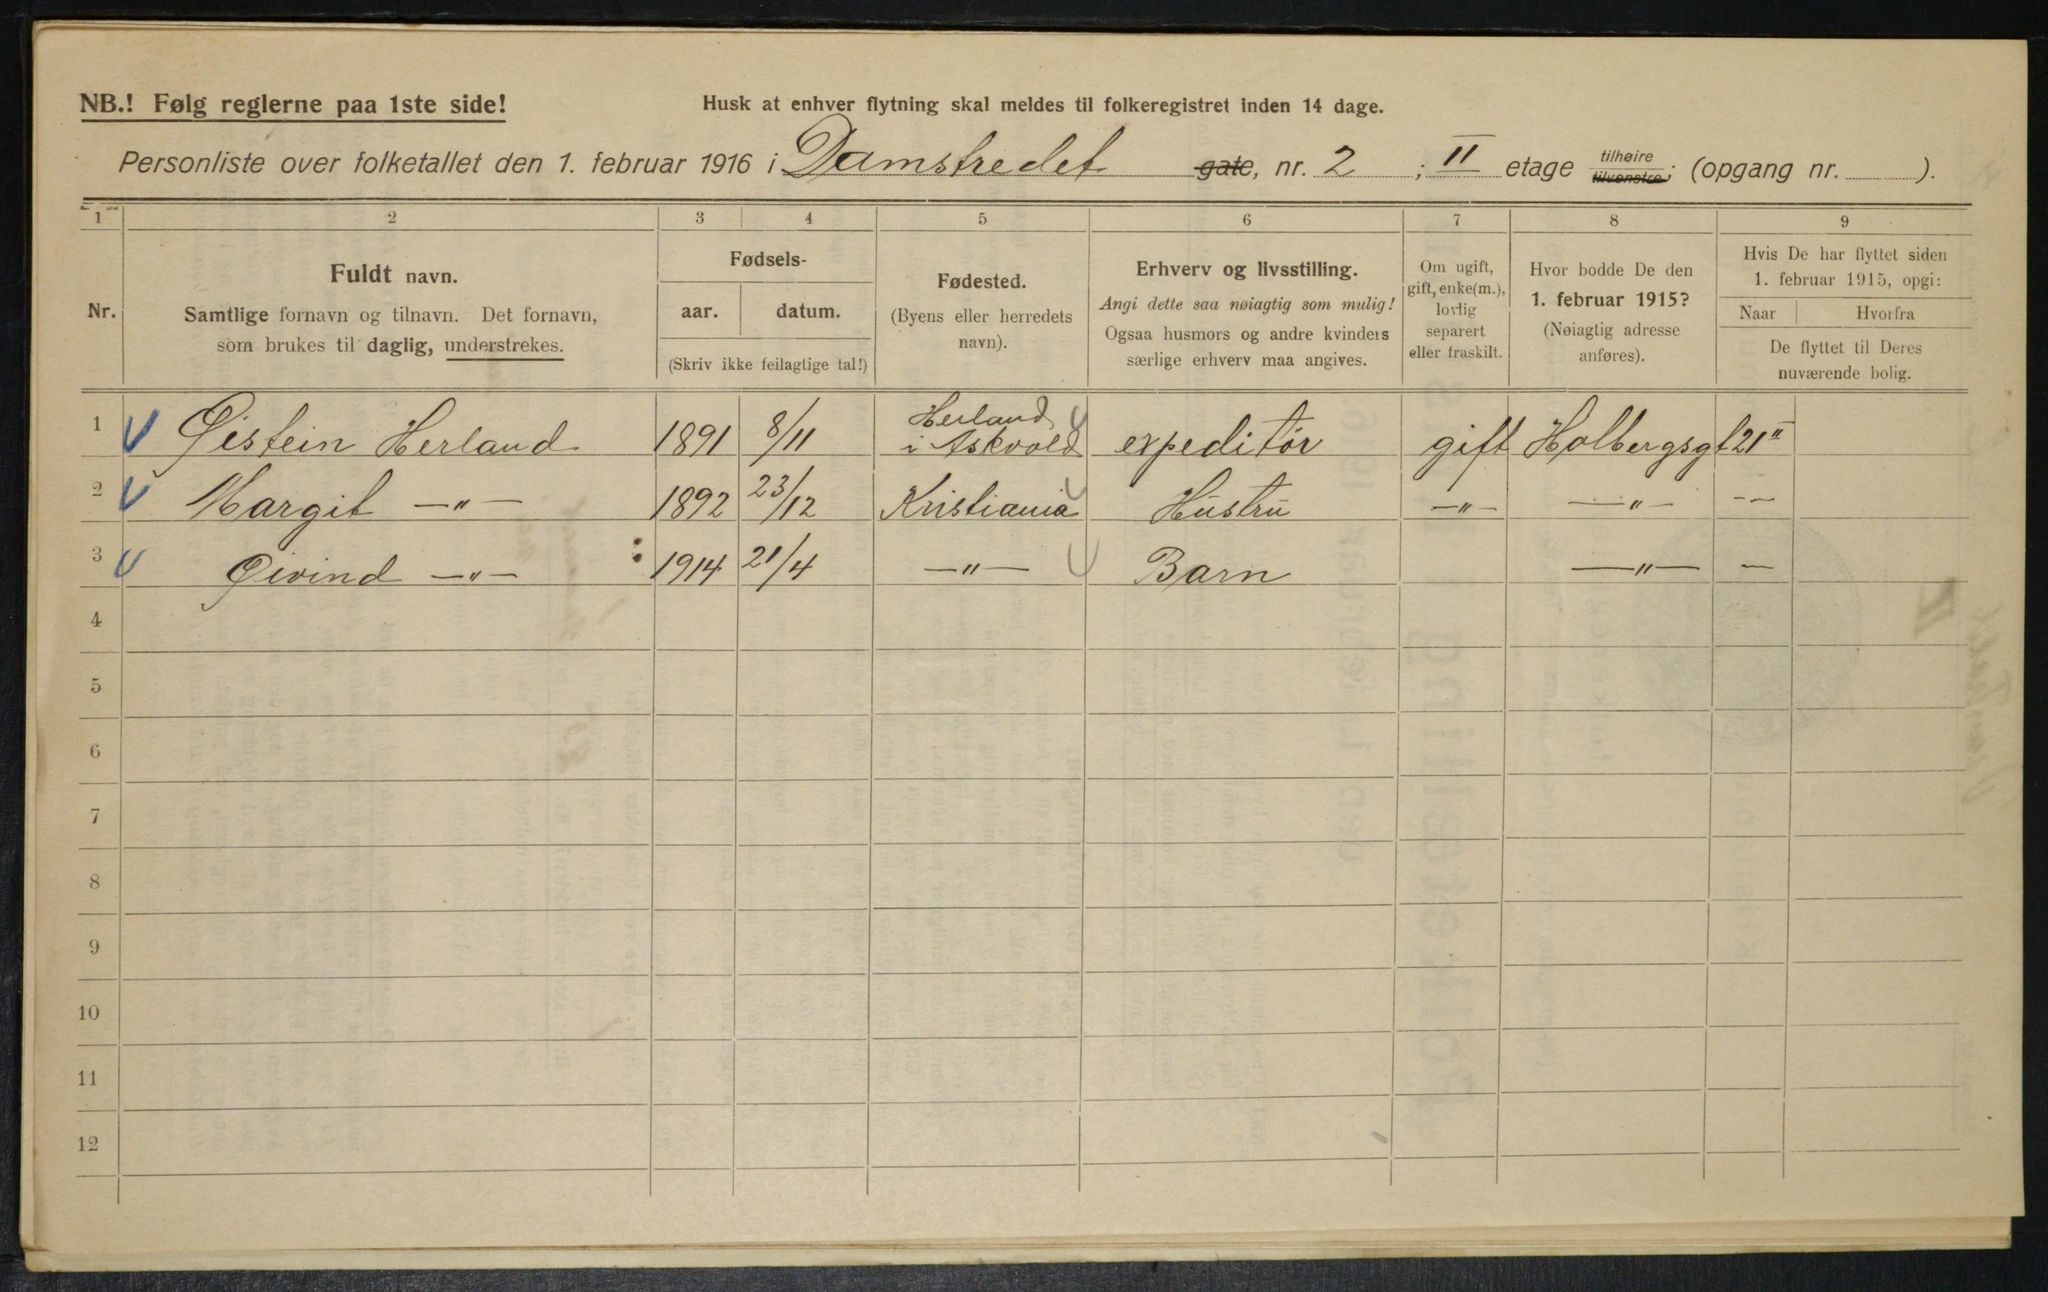 NB.! Følg reglerne paa 1ste side!
Husk at enhver flytning skal meldes til folkeregistret inden 14 dage.
Personliste over folketallet den 1. februar 1916 i Damstredet gate, nr. 2 ; II etage tilhøire tilvenstre; (opgang nr. ).
1 2 3 4 5 6 7 8 9
Nr.
Fuldt navn.
Samtlige fornavn og tilnavn. Det fornavn,
som brukes til daglig, understrekes.
Fødsels-
aar. datum.
(Skriv ikke feilagtige tal!)
Fødested.
(Byens eller herredets
navn).
Erhverv og livsstilling.
Angi dette saa nøiagtig som mulig!
Ogsaa husmors og andre kvinders
særlige erhverv maa angives.
Om ugift,
gift, enke(m.),
lovlig
separert
eller fraskilt.
Hvor bodde De den
1. februar 1915?
(Nøiagtig adresse
anføres).
Hvis De har flyttet siden
1. februar 1915, opgi:
Naar Hvorfra
De flyttet til Deres
nuværende bolig.
1 Øistein Herland 1891 8/11 Herland i Askvold expeditør gift Holbergsgt 21 II
2 Margit —"— 1892 23/12 Kristiania Hustru —"— —"— --
3 Øivind —"— 1914 21/4 —"— Barn —"— —
4
5
6
7
8
9
10
11
12